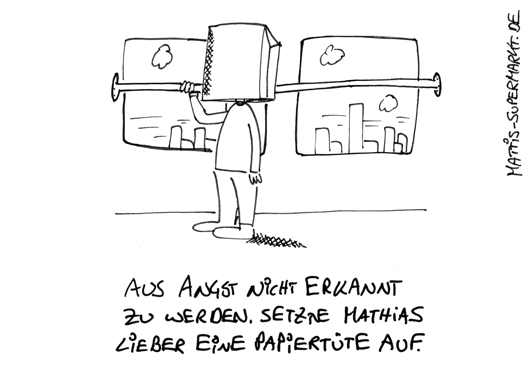 MATTIS-SUPERMARKT.DE
AUS ANGST NICHT ERKANNT
ZU WERDEN. SETZTE MATHIAS
LIEBER EINE PAPIERTÜTE AUF.